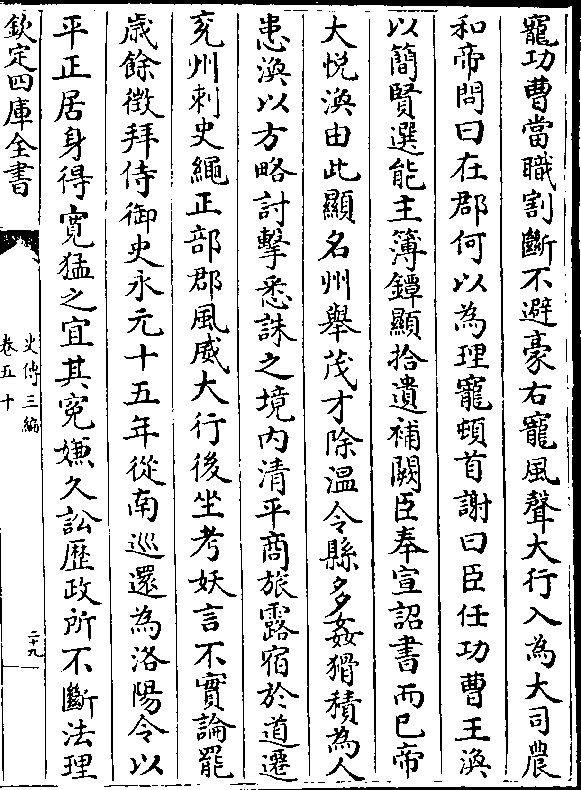 寵功曹當職割斷不避豪右寵風聲大行入為大司農
和帝問曰在郡何以為理寵頓首謝曰臣任功曹王渙
以簡賢選能主簿鐔顯拾遺補闕臣奉宣詔書而已帝
大悅渙由此顯名州舉茂才除溫令縣多姦猾積為人
患渙以方略討擊悉誅之境內清平商旅露宿於道遷
兗州刺史繩正部郡風威大行後坐考妖言不實論罷
歲餘徵拜侍御史永元十五年從南巡還為洛陽令以
平正居身得寬猛之宜其冤嫌久訟歷政所不斷法理
欽定四庫全書
史傳三編
卷五十
二十九